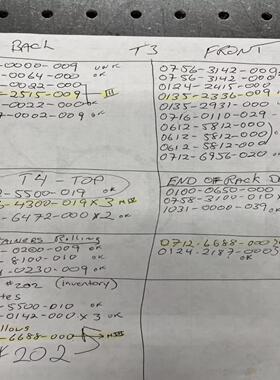 BACK T3 FRONT
-0000-009 UNK
-0064-000 OK
-0082-000
-2515-009 III
-0022-000 OK
7-0002-009 OK
0756-3142-000
0756-3142-000
0124-2415-000
0135-2336-009
0135-2931-000
0716-0110-029
0612-5812-000
0612-5812-000
0612-5812-000
0712-6956-020 OK
T4 - TOP
-5500-019 OK
-4300-019 X 3
-6472-000 X 2 OK
END OF RACK
0100-0650-000
0758-3100-010 X
1031-0000-039 OK
TAINERS Rolling
-0200-009 OK
-8100-010 OK
-0230-009 OK
0712-6688-000
0124-2187-000 OK
#202 (Inventory)
tes
-5500-010 OK
-0142-000 X 3 OK
llows
-6688-000
#202